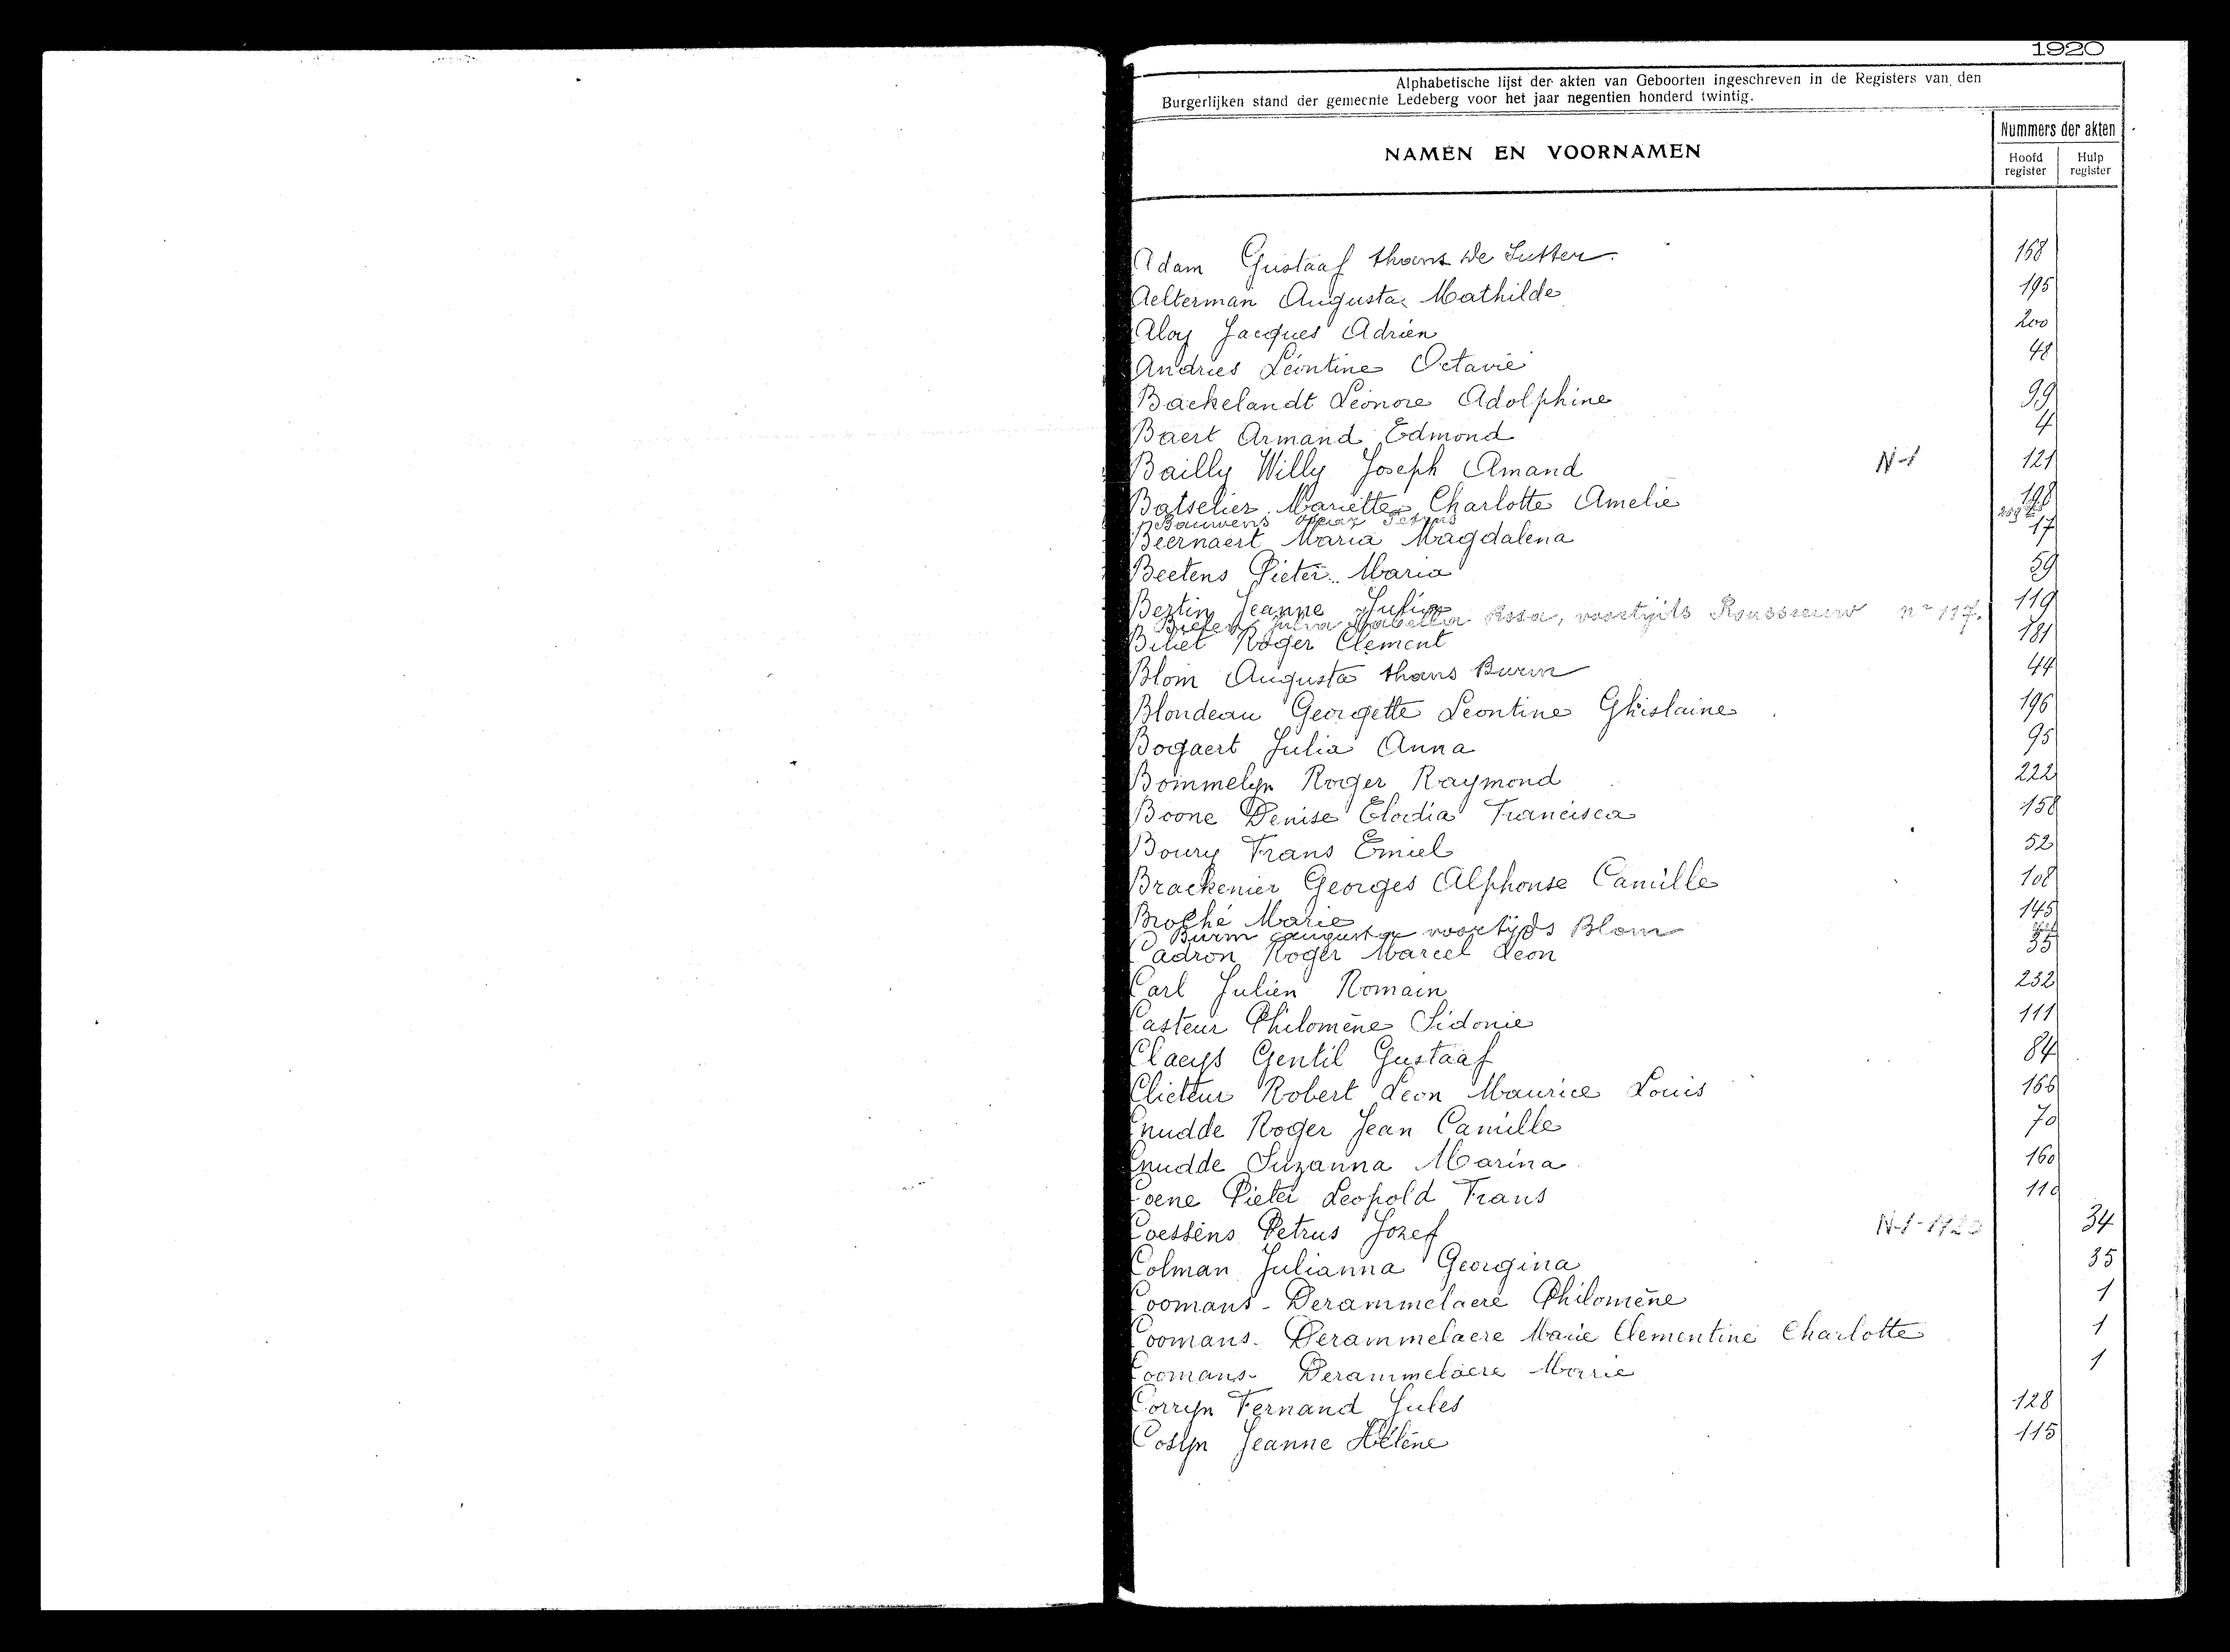 1920
Alphabetische lijst der akten van Geboorten ingeschreven in de Registers van den
Burgerlijken stand der gemeente Ledeberg voor het jaar negentien honderd twintig.
NAMEN EN VOORNAMEN
Nummers der akten
Hoofd register
Hulp register
Adam Gustaaf thans De Sutter 168
Aelterman Augusta Mathilde 195
Aloy Jacques Adrien 200
Andries Léontine Octavie 48
Backelandt Léonore Adolphine 99
Baert Armand Edmond 4
Bailly Willy Joseph Amand N-1 121
Batselier Mariette Charlotte Amelie 198
Bauwens Petrus
Beernaert Maria Magdalena 17
Beetens Pieter Maria 59
Bertin Jeanne Julia 119
Julia Rosa, voortijds Rousseeuw n° 117.
Biliet Roger Clement 181
Blom Augusta thans Burm 44
Blondeau Georgette Leontine Ghislaine 196
Bogaert Julia Anna 95
Bommelyn Roger Raymond 222
Boone Denise Elodia Francisca 158
Boury Frans Emiel 52
Brackenier Georges Alphonse Camille 108
Broché Marie 145
Burm Augusta voortijds Blom
Cadron Roger Marcel Leon 35
Carl Julien Romain 232
Casteur Philomène Sidonie 111
Claeys Gentil Gustaaf 84
Clicteur Robert Leon Maurice Louis 166
Cnudde Roger Jean Camille 70
Cnudde Suzanna Marina 160
Coene Pieter Leopold Frans 110
Coessens Petrus Jozef N-1-1920 34
Colman Julianna Georgina 35
Coomans-Derammelaere Philomène 1
Coomans-Derammelaere Marie Clementine Charlotte 1
Coomans-Derammelaere Marie 1
Corryn Fernand Jules 128
Cosyn Jeanne Hélène 115